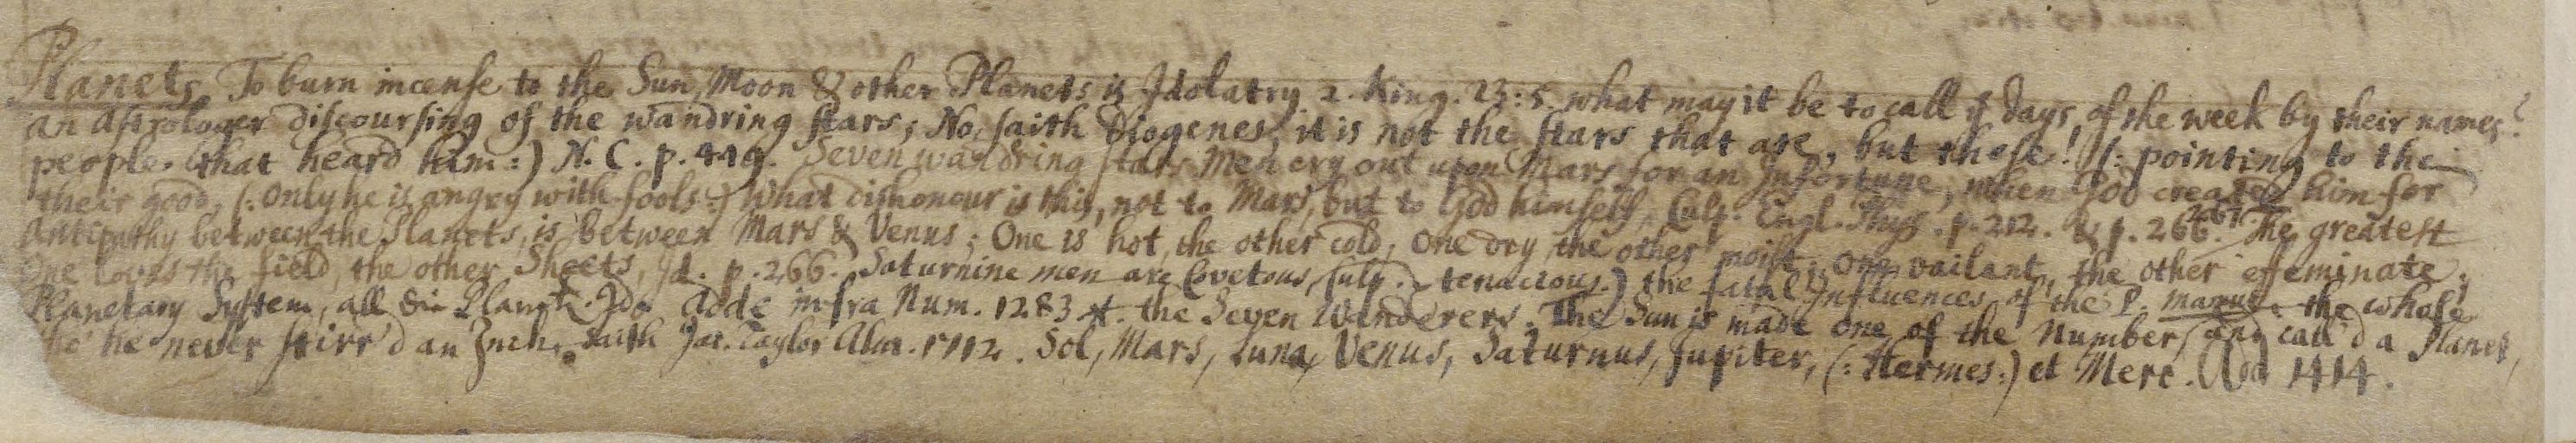 Planets. To burn incense to the Sun, Moon & other Planets is Idolatry. 2. King. 23:5. what may it be to call ye days, of the week by their names?
an Astrologer discoursing of the wandring stars; No, saith Diogenes, it is not the stars that are, but these! (: pointing to the
people. that heard him:) N. C. p. 449. Seven wandring stars. Men cry out upon Mars for an Infortune, when God created him for
their good, (: only he is angry with fools:) What dishonour is this, not to Mars, but to God himself, Culp. Engl. Phys. p. 212. & p. 266. 267. The greatest
Antipathy between the Planets, is between Mars & Venus; One is hot, the other cold, One dry, the other moist; one vailant, the other effeminate;
One loves the field, the other Sheets, Id. p. 266. Saturnine men are Covetous, tenacious.) the fatal Influences of the P. the whole
Planetary System, all Planets. adde infra Num. 1283 the Seven Wanderers. The Sun is made one of the Number, and call'd a Planet,
tho' he never stirr'd an Inch, saith Jac. Taylor Alm. 1712. Sol, Mars, Luna, Venus, Saturnus, Jupiter, (: Hermes:) et Merc. 1414.